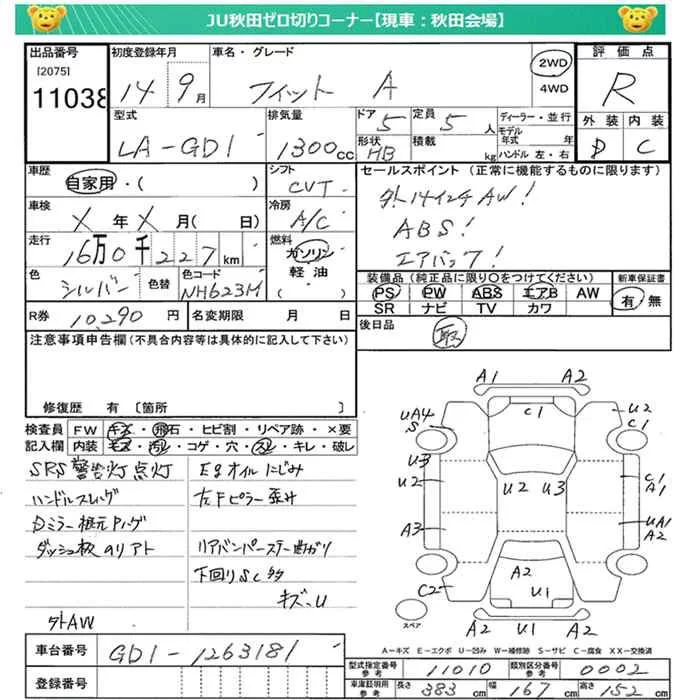 JU秋田ゼロ切りコーナー【現車：秋田会場】
出品番号 [2075] 11038
初度登録年月 14 9月
車名・グレード フィット A
2WD 4WD
評価点 R
外装 D 内装 C
型式 LA-GD1
排気量 1300cc
ドア 5 形状 HB
定員 5人 積載 kg
ディーラー・並行
モデル年式 年
ハンドル 左・右
車歴 自家用・( )
シフト CVT
セールスポイント (正常に機能するものに限ります)
外14インチAW!
ABS!
エアバック!
車検 X年X月(日)
冷房 A/C
走行 16万0千227km
燃料 ガソリン・軽油・( )
色 シルバー 色替 色コード NH623M
装備品 (純正品に限り○をつけてください)
PS PW ABS エアB AW
SR ナビ TV カワ
新車保証書 有 無
R券 10,290円
名変期限 月 日
後日品 取
注意事項申告欄(不具合内容等は具体的に記入して下さい)
修復歴 有 [箇所
検査員記入欄
FW キズ・飛石・ヒビ割・リペア跡・×要
内装 キズ・汚レ・コゲ・穴・スレ・キレ・破レ
SRS警告灯点灯
ハンドルスレハゲ
Dミラー根元Pハゲ
ダッシュ板ノリアト
外AW
Egオイルにじみ
左Fピラー歪み
リアバンパーステー曲ガリ
下回りSC多
キズ・U
A1 A2
C1
UA4 S
U2 C1
U3
U2
U2 U3
C1 A1
A3
UA1 A2
C2
A2
U1
A2 U1 A2
スペア
A－キズ E－エクボ U－凹み W－補修跡 S－サビ C－腐食 XX－交換済
車台番号 GD1-1263181
登録番号
型式指定番号 参考 11010
類別区分番号 参考 0002
車庫証明用 参考 長さ 383cm 幅 167cm 高さ 152cm